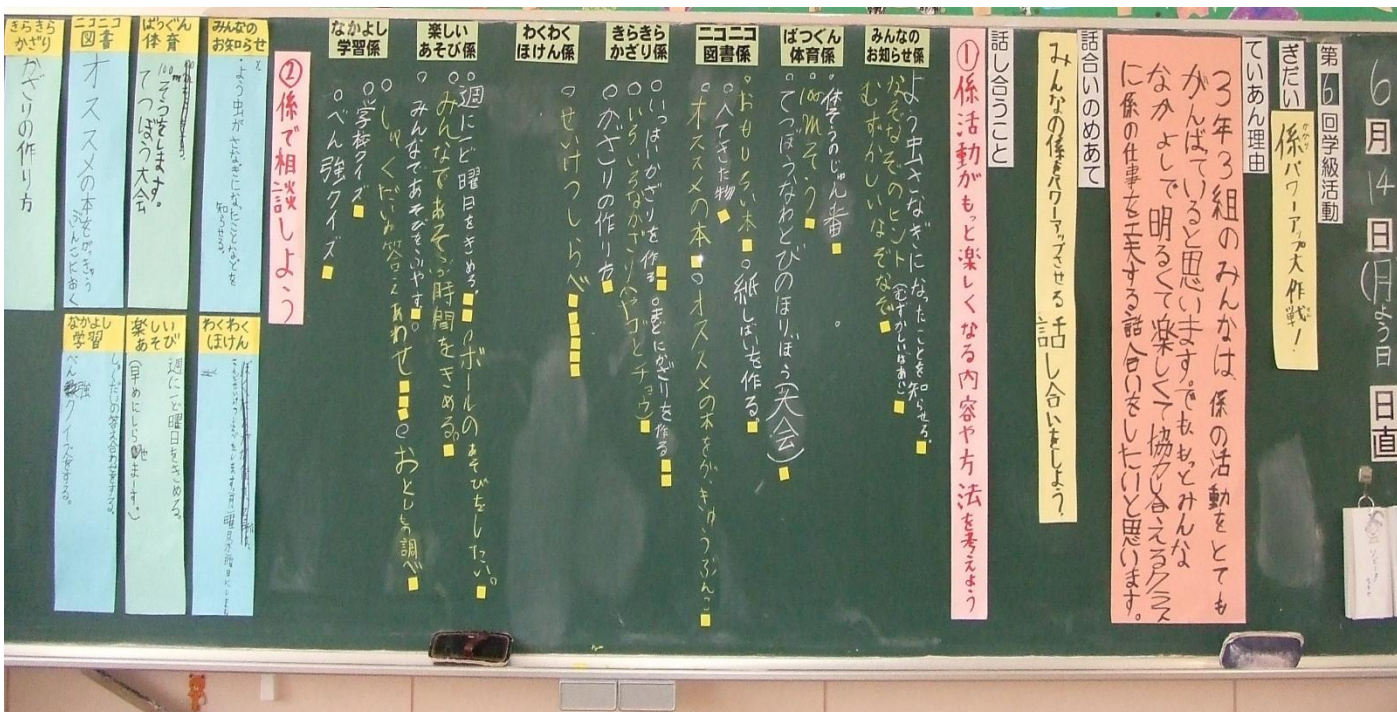 6月14日(月)よう日
日直
第6回学級活動
ぎだい
係パワーアップ大作戦!
かかり
ていあん理由
3年3組のみんなは、係の活動をとても
がんばっていると思います。でも、もっとみんな
なかよしで明るくて楽しくて協力し合えるクラス
に係の仕事を工夫する話し合いをしたいと思います。
話合いのめあて
みんなの係をパワーアップさせる話し合いをしよう。
話し合うこと
①係活動がもっと楽しくなる内容や方法を考えよう
みんなの
お知らせ係
よう虫さなぎになったことを知らせる。
なぞなぞのヒント(むずかしいばあい)
むずかしいなぞなぞ
ばつぐん
体育係
○体そうのじゅん番
○100mそう
○てつぼうなわとびのほうほう(大会)
ニコニコ
図書係
○おもしろい本
○紙しばいを作る
○人てきた物
○オススメの本
○オススメの本をがっきゅうぶんこ
きらきら
かざり係
○いっぱいかざりを作る
○まどにかざりを作る
○いろいろなかざり
○かざりの作り方
わくわく
ほけん係
○せいけつしらべ
○おとし物調べ
楽しい
あそび係
○週に一ど曜日をきめる。
○ボールのあそびをしたい。
○みんなであそぶ時間をきめる。
みんなであそびをふやす。
なかよし
学習係
○しゅくだいの答えあわせ
○学校クイズ
○べん強クイズ
②係で相談しよう
みんなの
お知らせ
・よう虫がさなぎになったことなどを
知らせる。
ばつぐん
体育
100mそうをします。
てつぼう大会
ニコニコ
図書
オススメの本をがっきゅう
ぶんこにおく
きらきら
かざり
かざりの作り方
わくわく
ほけん
楽しい
あそび
週に一ど曜日をきめる。
(早めにしらせます。)
なかよし
学習
しゅくだいの答え合わせをする。
べん強クイズをする。